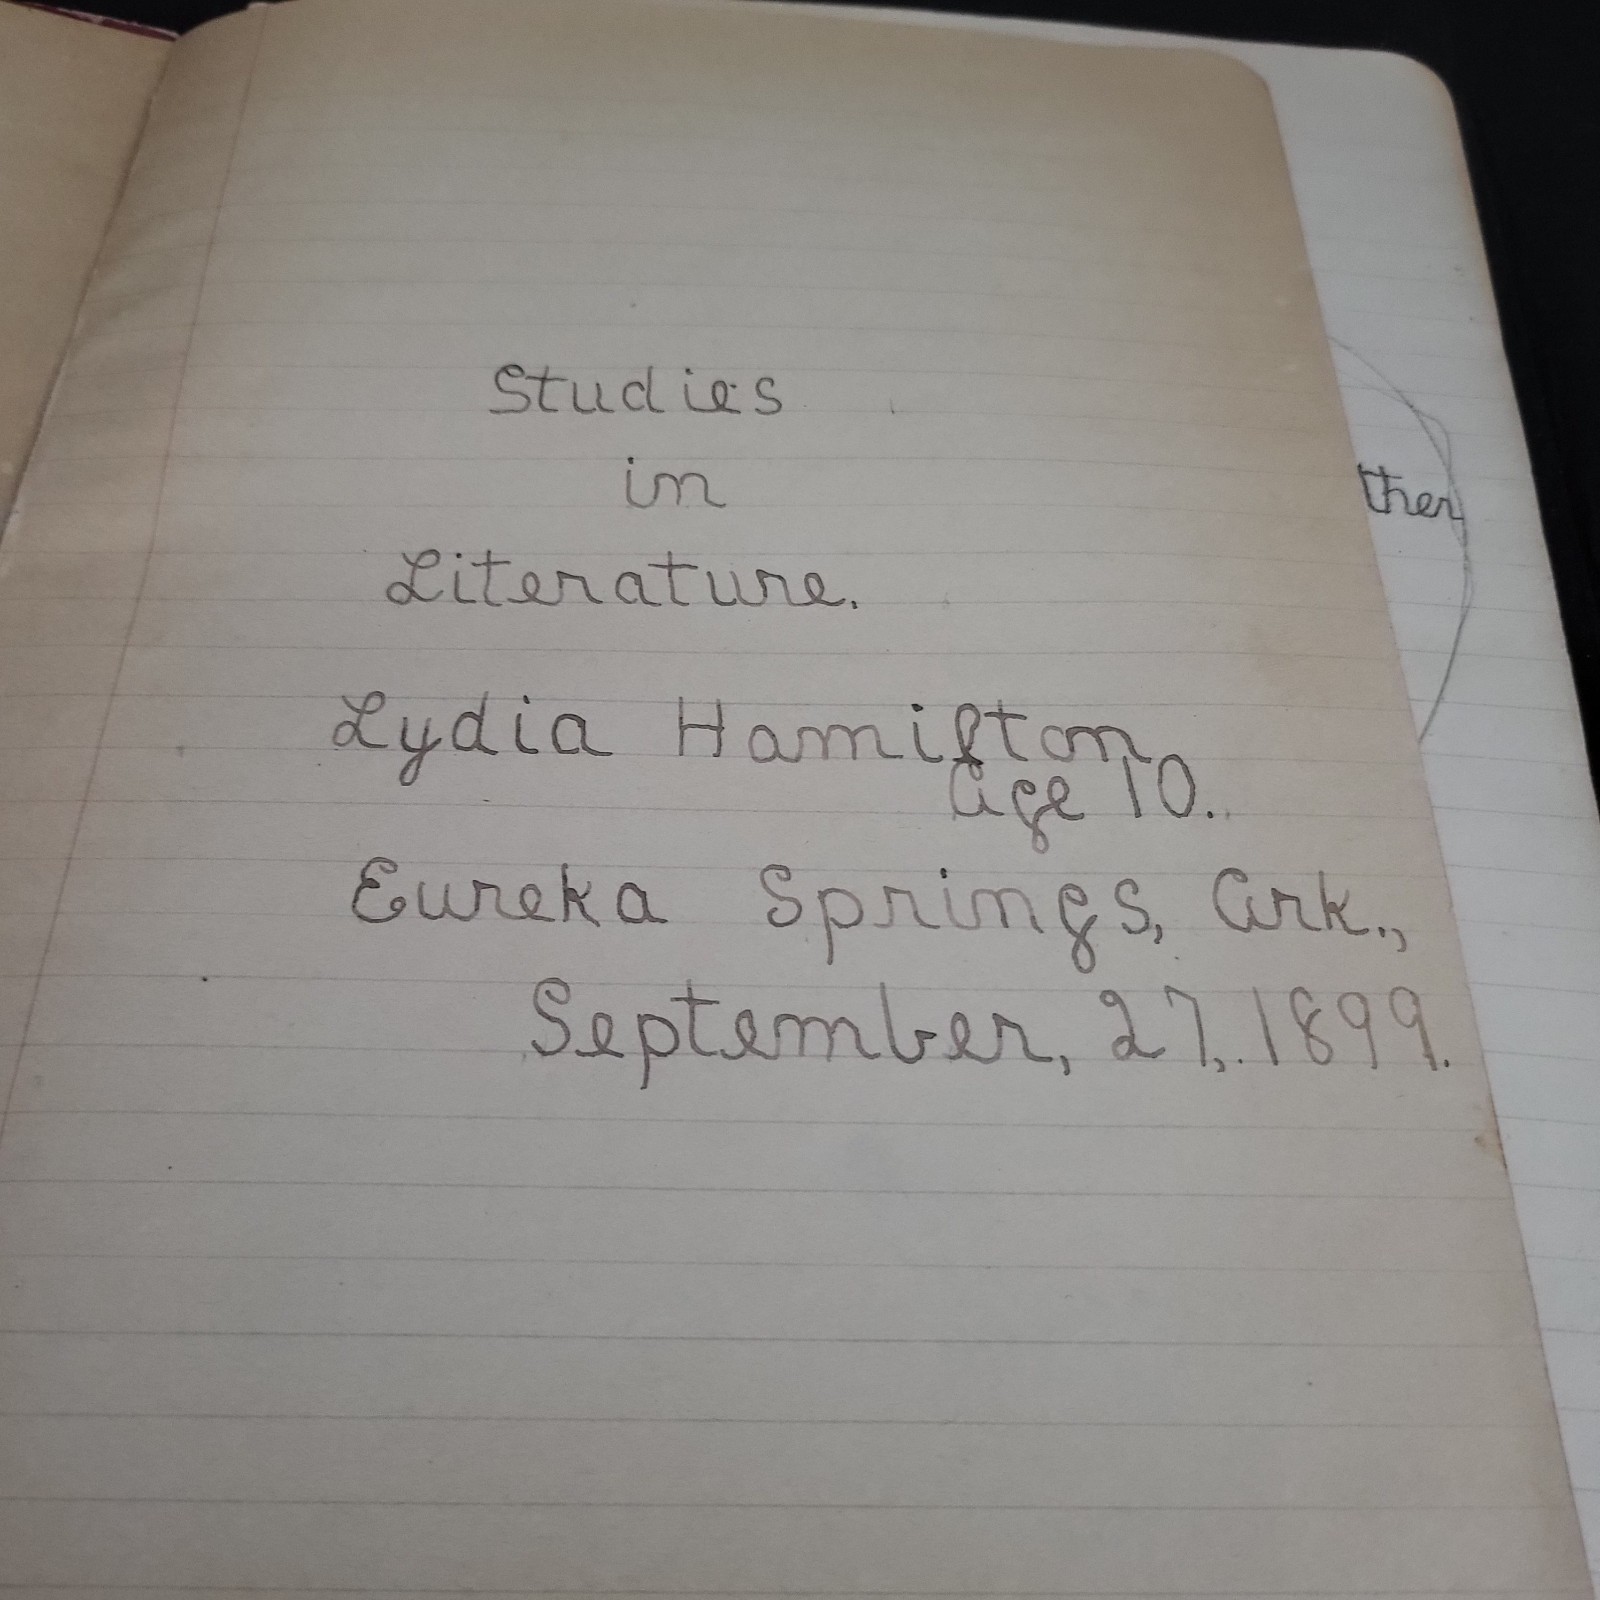 Studies
in
Literature.
Lydia Hamilton
Age 10.
Eureka Springs, Ark.,
September, 27, 1899.
ther